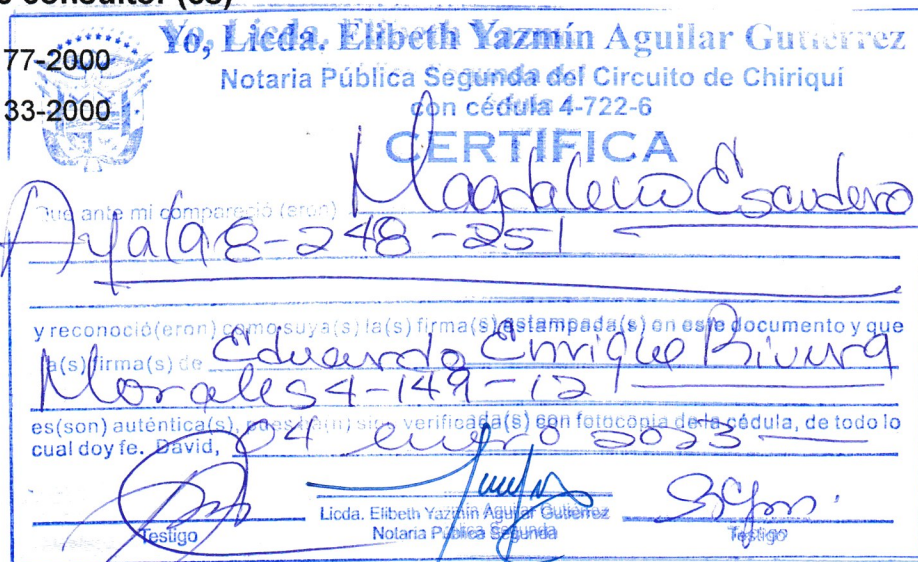 consultor (es)
Yo, Licda. Elibeth Yazmín Aguilar Gutiérrez
77-2000
Notaria Pública Segunda del Circuito de Chiriquí
33-2000
con cédula 4-722-6
CERTIFICA
Que ante mi compareció (eron) Magdaleno Escudero
Ayala 8-248-251
y reconoció(eron) como suya(s) la(s) firma(s) estampada(s) en este documento y que
la(s) firma(s) de Eduardo Enrique Rivera
Morales 4-149-121
es(son) auténtica(s), pues ha(n) sido verificada(s) con fotocopia de la cédula, de todo lo
cual doy fe. David, 04 enero 2023
Licda. Elibeth Yazmín Aguilar Gutiérrez
Testigo Notaria Pública Segunda Testigo